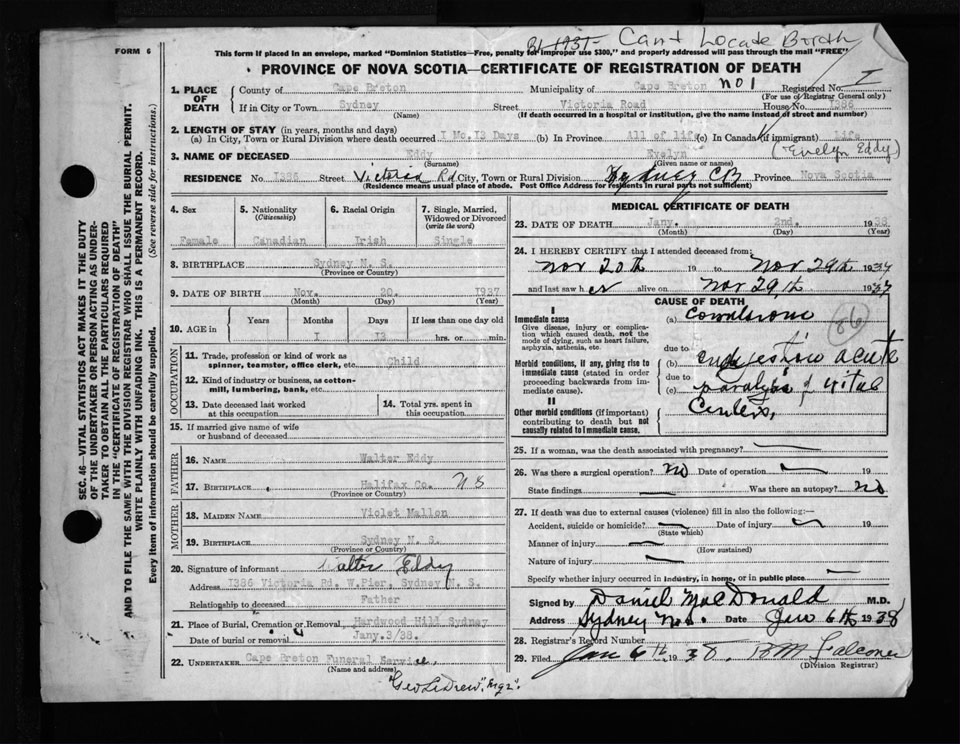 Can't Locate Birth
FORM 6
This form if placed in an envelope, marked "Dominion Statistics—Free, penalty for improper use $300," and properly addressed will pass through the mail "FREE"
PROVINCE OF NOVA SCOTIA—CERTIFICATE OF REGISTRATION OF DEATH
1. PLACE OF DEATH
County of Cape Breton Municipality of Cape Breton No 1 Registered No.
(For use of Registrar General only)
If in City or Town Sydney Street Victoria Road House No. 1386
(Name) (If death occurred in a hospital or institution, give the name instead of street and number)
2. LENGTH OF STAY (in years, months and days)
(a) In City, Town or Rural Division where death occurred I Mo.I2 Days (b) In Province All of life (c) In Canada (if immigrant) Life
3. NAME OF DECEASED Eddy Evelyn (Evelyn Eddy)
(Surname) (Given name or names)
RESIDENCE No. 1386 Street Victoria Rd City, Town or Rural Division Sydney CB Province Nova Scotia
(Residence means usual place of abode. Post Office Address for residents in rural parts not sufficient)
4. Sex 5. Nationality (Citizenship) 6. Racial Origin 7. Single, Married, Widowed or Divorced (write the word)
Famale Canadian Irish Single
8. BIRTHPLACE Sydney N. S.
(Province or Country)
9. DATE OF BIRTH Nov. 20. 1937
(Month) (Day) (Year)
10. AGE in Years Months Days If less than one day old
I I3 hrs. or min.
OCCUPATION
11. Trade, profession or kind of work as spinner, teamster, office clerk, etc. Child
12. Kind of industry or business, as cotton-mill, lumbering, bank, etc.
13. Date deceased last worked at this occupation
14. Total yrs. spent in this occupation
15. If married give name of wife or husband of deceased
FATHER
16. NAME Walter Eddy
17. BIRTHPLACE Halifax Co. N S
(Province or Country)
MOTHER
18. MAIDEN NAME Violet Mallon
19. BIRTHPLACE Sydney N. S.
(Province or Country)
20. Signature of informant Walter Eddy
Address I386 Victoria Rd. W.Pier. Sydney N. S.
Relationship to deceased Father
21. Place of Burial, Cremation or Removal Hardwood Hill Sydney
Date of burial or removal Jany.3/38.
22. UNDERTAKER Cape Breton Funeral Service,
(Name and address)
"Geo LeDrew". Mgr".
MEDICAL CERTIFICATE OF DEATH
23. DATE OF DEATH Jany. 2nd. 1938
(Month) (Day) (Year)
24. I HEREBY CERTIFY that I attended deceased from:
Nov 20th 19 to Nov 29th 1937
and last saw her alive on Nov 29th 1937
CAUSE OF DEATH
I
Immediate cause
Give disease, injury or complication which caused death, not the mode of dying, such as heart failure, asphyxia, asthenia, etc.
(a)
86
due to
Morbid conditions, if any, giving rise to immediate cause (stated in order proceeding backwards from immediate cause).
(b) acute
due to
(c) paralysis of vital
Centers,
II
Other morbid conditions (if important) contributing to death but not causally related to immediate cause.
25. If a woman, was the death associated with pregnancy?
26. Was there a surgical operation? No Date of operation 19
State findings Was there an autopsy? No
27. If death was due to external causes (violence) fill in also the following:—
Accident, suicide or homicide? Date of injury 19
(State which)
Manner of injury
(How sustained)
Nature of injury
Specify whether injury occurred in industry, in home, or in public place
Signed by Daniel MacDonald M.D.
Address Sydney N.S. Date Jan 6th 1938
28. Registrar's Record Number
29. Filed Jan 6th 1938. Falconer
(Division Registrar)
SEC. 46—VITAL STATISTICS ACT MAKES IT THE DUTY
OF THE UNDERTAKER OR PERSON ACTING AS UNDER-
TAKER TO OBTAIN ALL THE PARTICULARS REQUIRED
IN THE "CERTIFICATE OF REGISTRATION OF DEATH"
AND TO FILE THE SAME WITH THE DIVISION REGISTRAR WHO SHALL ISSUE THE BURIAL PERMIT.
WRITE PLAINLY WITH UNFADING INK. THIS IS A PERMANENT RECORD.
Every item of information should be carefully supplied. (See reverse side for instructions.)